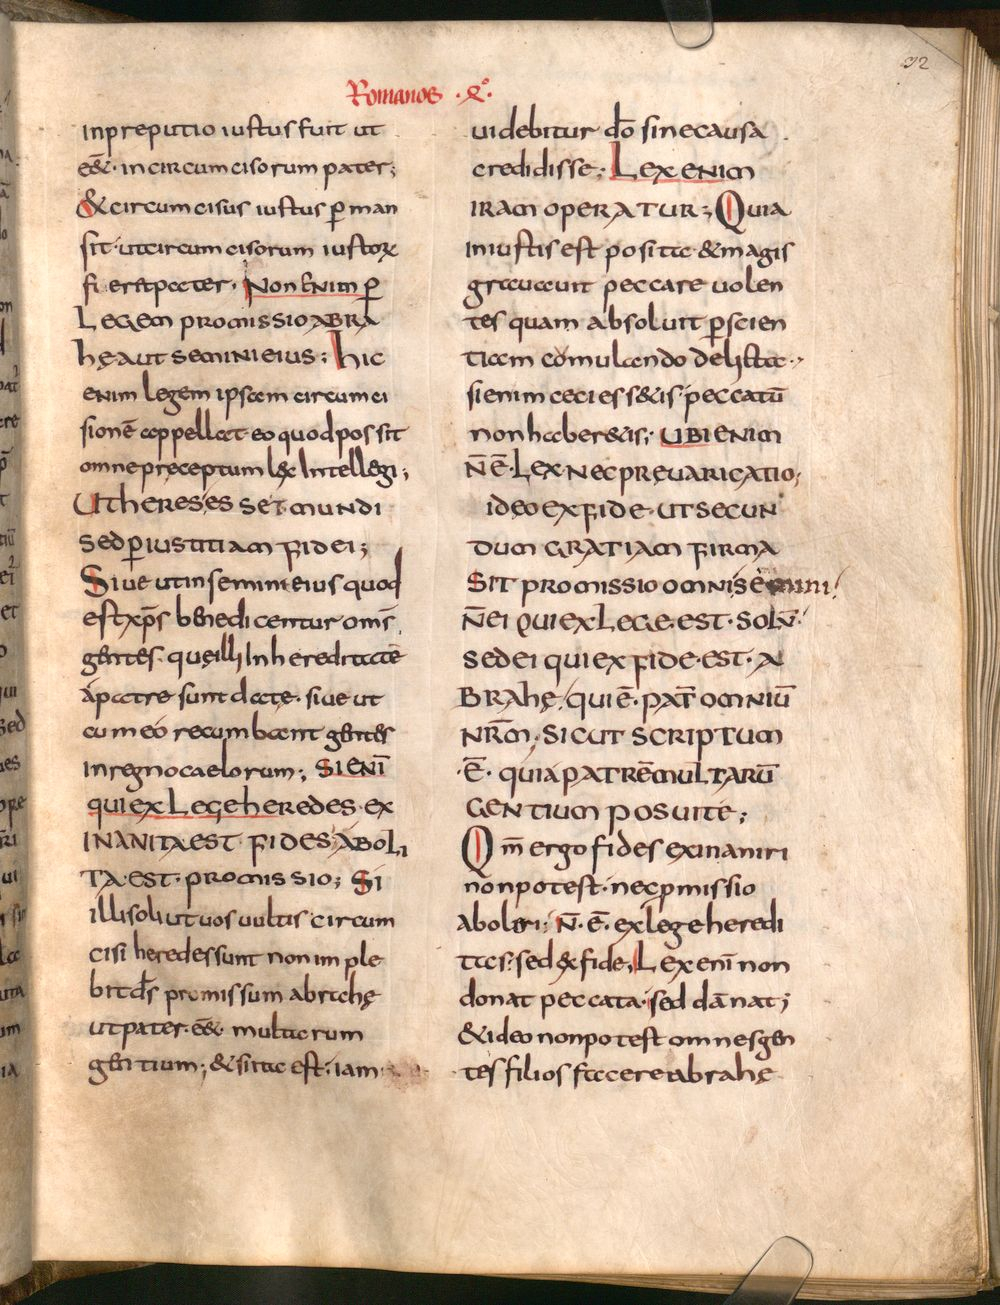 92
Romanos .
inpreputio iustus fuit ut
eēt. incircumcisorum pater;
& circumcisus iustus p̱ man
sit. ut circumcisorum iustorꝝ
fieret pater. Non enim p̱
Legem promissio abra
hę aut semini eius; hic
enim legem ipsam circumci
sionē appellat. eo quod possit
omne preceptum lex intellegi;
Ut hereses set mundi
sed p̱ iustitiam fidei;
Siue ut in semine eius quod
est xp̄s benedicentur om̄s
gentes. que illi in hereditatē
a patre sunt date. siue ut
cum eo recumbant gentes
in regno caelorum; Si enī
qui ex Lege heredes. ex
inanita est fides. aboli
ta est. promissio; Si
illi soli ut uos uultis circum
cisi heredes sunt non imple
bit d̄s promissum abrahę
ut pater. eēt multarum
gentium; & sita est. iam
uidebitur d̄o sine causa
credidisse; Lex enim
iram operatur; Quia
iniustis est posita & magis
grauauit peccare uolen
tes quam absoluit p̱ scien
tiam comulando delicta.
si enim caeci ess&is peccatū
non haber&is; Ubi enim
n̄ ē. Lex. nec preuaricatio;
ideo ex fide. ut secun
dum gratiam firma
sit promissio omni semini
n̄ ei qui ex Lege. est. solū.
sed ei qui ex fide. est. a
brahę, qui ē. pat̄ omniū
nr̄m. sicut scriptum
.ē. quia patrē multarū
gentium posui te;
Qm̄ ergo fides exinaniri
non potest. nec promissio
aboleri; N̄. Ē. ex lege heredi
tas. sed ex fide; Lex enī non
donat peccata. sed dānat;
& ideo non potest omnes gen
tes filios facere abrahę